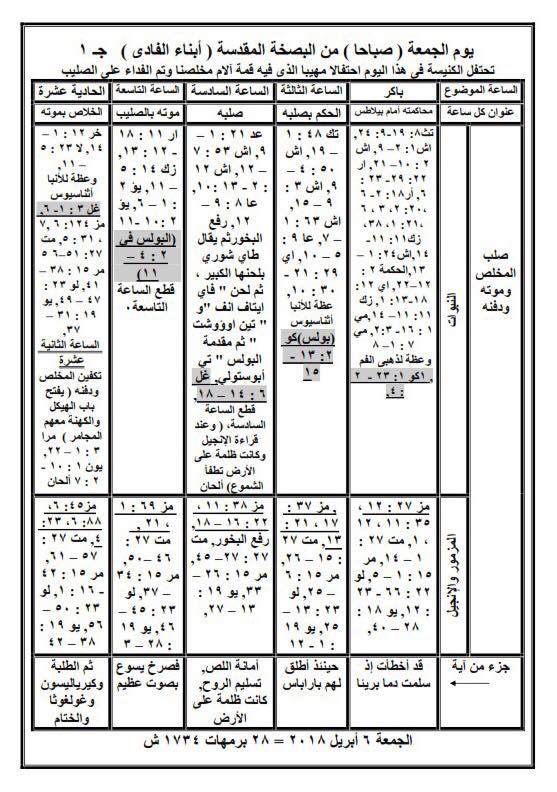 يوم الجمعة ( صباحا ) من البصخة المقدسة ( أبناء الفادى ) جـ ١
تحتفل الكنيسة في هذا اليوم احتفالا مهيبا الذى فيه قمة آلام مخلصنا وتم الفداء على الصليب
الساعة الموضوع
باكر
الساعة الثالثة
الساعة السادسة
الساعة التاسعة
الحادية عشرة
عنوان كل ساعة
محاكمته أمام بيلاطس
الحكم بصلبه
صلبه
موته بالصليب
الخلاص بموته
صلب
المخلص
وموته
ودفنه
النبوات
تث٨: ١٩–٩: ٢٤,
اش١: ٢– ٩, اش
٢ : ١٠– ٢١, ار
٢٢: ٢٩– ٢٣ :
٦, أر١٨: ٢– ٦
,٢٠: ٢, ٣ , ٦
,٢١: ١, ٣٨,
زك١١: ١١–
١٤, اش٢٤: ١–
١٣, الحكمة ٢ :
١٢–٢٢, اي ١٢:
١٨–١٣: ١, زك
١١: ١١–١٤, مي
١: ١٦–٢: ٣, مي
٧ : ١– ٨
وعظة لذهبي الفم
,١كو ١: ٢٣ - ٢
: ٤,
تك ٤٨ : ١
– ١٩, اش
٥٠ : ٤–
٩, اش ٣ :
٩ – ١٥,
اش ٦٣ : ١
– ٧, عا ٩ :
٥ – ١٠, اي
٢٩ : ٢١ –
٣٠ : ١٠,
عظة للأنبا
أثناسيوس
(بولس)كو
٢ : ١٣ –
١٥
عد ٢١ : ١–
٩, اش ٥٣ : ٧
– ١٢, اش ١٢
: ٢ – ١٣ : ١٠,
عا ٨ : ٩ –
١٢, رفع
البخورثم يقال
طاي شوري
بلحنها الكبير ،
ثم لحن " فاي
ايتاف انف "و
" تين اووؤشت
" ثم مقدمة
البولس " تي
أبوستولي, غل
٦ : ١٤ – ١٨,
قطع الساعة
السادسة, ( وعند
قراءة الإنجيل
وكانت ظلمة على
الأرض تطفأ
الشموع) ألحان
ار ١١ : ١٨
– ١٢ : ١٣,
زك ١٤ : ٥
– ١١, يؤ ٢
: ١ – ٦, يؤ
٢ : ١٠ – ١١
(البولس في
٢ : ٤ –
١١)
قطع الساعة
التاسعة٠
خر ١٢ : ١ –
١٤, لا ٢٣ : ٥
– ١١,
وعظة للأنبا
أثناسيوس
غل ٣ : ١– ٦,
مز ١٢٤: ٦, ٧
, ٣١ : ٥, مت
٢٧ : ٥١– ٥٦
مر ١٥ : ٣٨ –
٤١, لو ٢٣ :
٤٧ – ٤٩, يو
١٩ : ٣١ –
٣٧,
الساعة الثانية
عشرة
تكفين المخلص
ودفنه ( يفتح
باب الهيكل
والكهنة معهم
المجامر ) مرا
٣ : ١ – ٢٢,
يون ١ : ١٠ –
٢ : ٧ ألحان
المزمور والإنجيل
مز ٢٧ : ١٢ ,
٣٥ : ١١, ١٢
, ١, مت ٢٧ :
١ – ١٤, مر
١٥ : ١ – ٥, لو
٢٢ : ٦٦ – ٢٣
: ١٢, يو ١٨ :
٢٨ – ٤٠,
, مز ٣٧:
١٧ , ٢١ :
١٣, مت ٢٧
: ١٥ – ٢٦,
مر ١٥ : ٦
– ٢٥, لو
٢٣ : ١٣ –
٢٥, يو ١٩
: ١ – ١٢
مز ٣٨ : ١١ ,
٢٢ : ١٦ – ١٨,
رفع البخور, مت
٢٧ : ٢٧ – ٤٥,
مر ١٥ : ٢٦ –
٣٣, يو ١٩ :
١٣ – ٢٧,
مز ٦٩ : ١
, ٢١ ,
مت ٢٧ :
٤٦ – ٥٠,
مر ١٥ : ٣٤
– ٣٧, لو
٢٣ : ٤٥ –
٤٦, يو ١٩
: ٢٨ – ٣
مز٤٥: ٦,
٨٨: ٦, ٢٣:
٤, مت ٢٧ :
٥٧ – ٦١,
مر ١٥ : ٤٢
– ١٦ : ١, لو
٢٣ : ٥٠ –
٥٦, يو ١٩ :
٣٨ – ٤٢
جزء من آية
قد أخطأت إذ
سلمت دما بريئا
حينئذ أطلق
لهم باراباس
أمانة اللص,
تسليم الروح,
كانت ظلمة على
الأرض
فصرخ يسوع
بصوت عظيم
ثم الطلبة
وكيرياليسون
وغولغوثا
والختام
الجمعة ٦ أبريل ٢٠١٨ = ٢٨ برمهات ١٧٣٤ ش